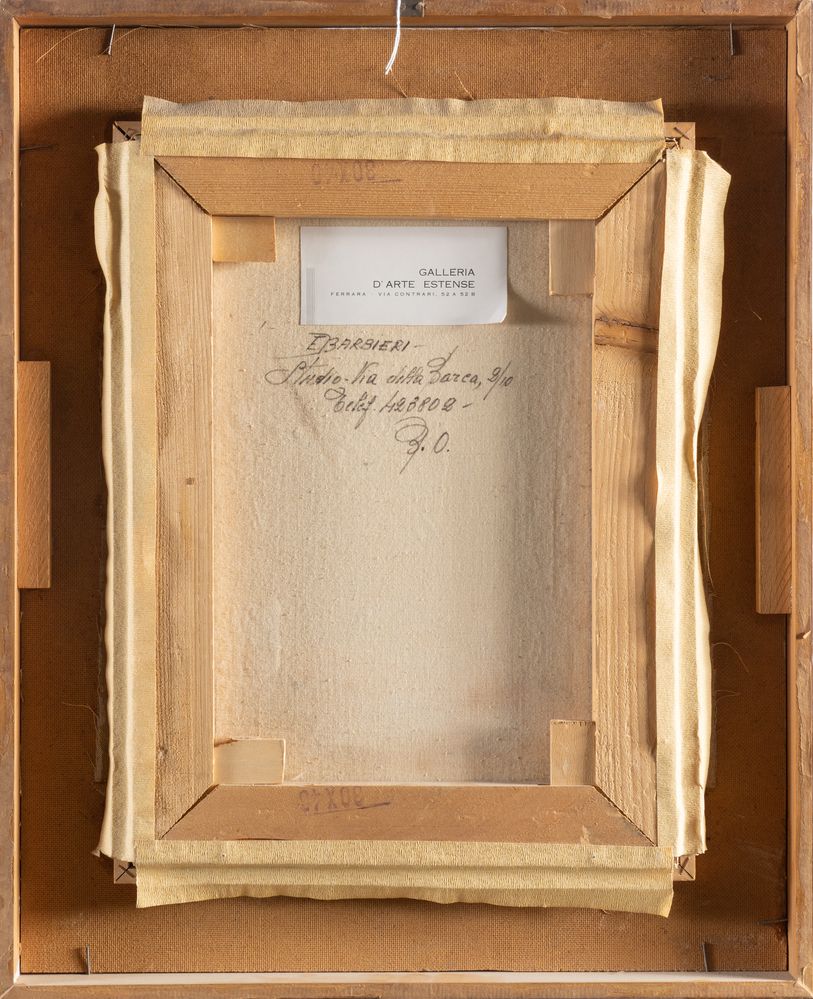 30X40
GALLERIA
D'ARTE ESTENSE
FERRARA - VIA CONTRARI, 52 A 52 B
BARBIERI -
Studio - Via della Barca, 2/10
Telef. 423802 -
B.O.
30X40